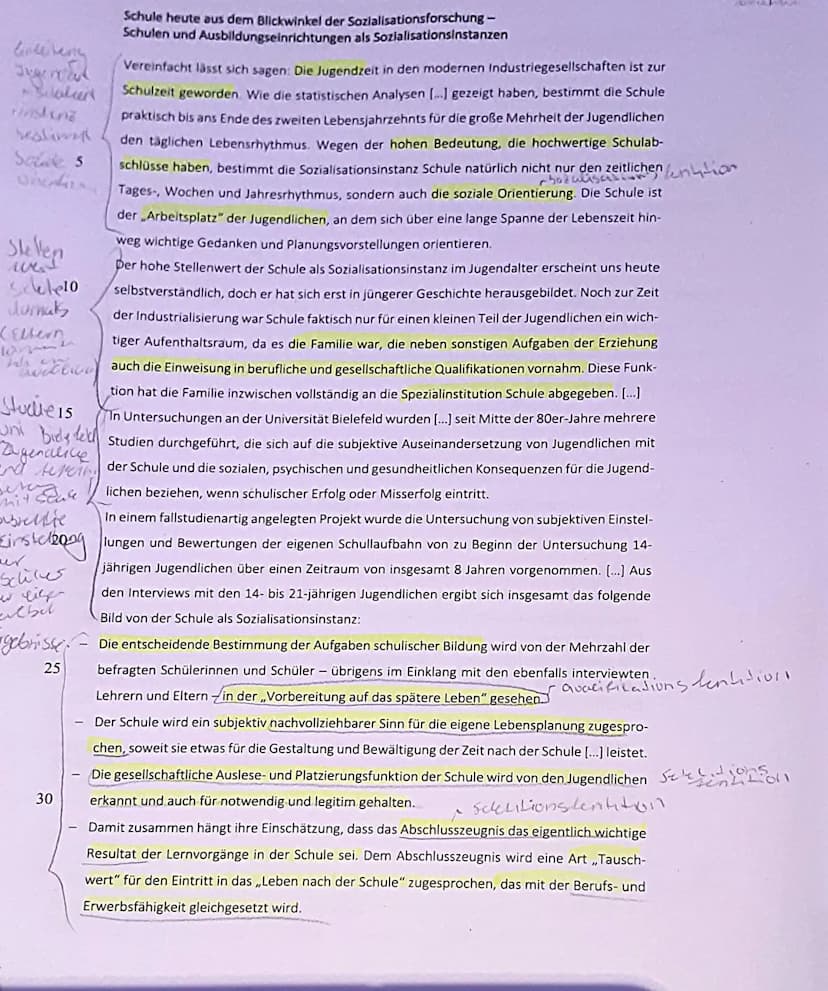 Schule heute aus dem Blickwinkel der Sozialisationsforschung –
Schulen und Ausbildungseinrichtungen als Sozialisationsinstanzen
Vereinfacht lässt sich sagen: Die Jugendzeit in den modernen Industriegesellschaften ist zur
Schulzeit geworden. Wie die statistischen Analysen [...] gezeigt haben, bestimmt die Schule
praktisch bis ans Ende des zweiten Lebensjahrzehnts für die große Mehrheit der Jugendlichen
den täglichen Lebensrhythmus. Wegen der hohen Bedeutung, die hochwertige Schulab-
5 schlüsse haben, bestimmt die Sozialisationsinstanz Schule natürlich nicht nur den zeitlichen
Tages-, Wochen und Jahresrhythmus, sondern auch die soziale Orientierung. Die Schule ist
der „Arbeitsplatz“ der Jugendlichen, an dem sich über eine lange Spanne der Lebenszeit hin-
weg wichtige Gedanken und Planungsvorstellungen orientieren.
Der hohe Stellenwert der Schule als Sozialisationsinstanz im Jugendalter erscheint uns heute
10 selbstverständlich, doch er hat sich erst in jüngerer Geschichte herausgebildet. Noch zur Zeit
der Industrialisierung war Schule faktisch nur für einen kleinen Teil der Jugendlichen ein wich-
tiger Aufenthaltsraum, da es die Familie war, die neben sonstigen Aufgaben der Erziehung
auch die Einweisung in berufliche und gesellschaftliche Qualifikationen vornahm. Diese Funk-
tion hat die Familie inzwischen vollständig an die Spezialinstitution Schule abgegeben. [...]
Studie 15 In Untersuchungen an der Universität Bielefeld wurden [...] seit Mitte der 80er-Jahre mehrere
Studien durchgeführt, die sich auf die subjektive Auseinandersetzung von Jugendlichen mit
der Schule und die sozialen, psychischen und gesundheitlichen Konsequenzen für die Jugend-
lichen beziehen, wenn schulischer Erfolg oder Misserfolg eintritt.
In einem fallstudienartig angelegten Projekt wurde die Untersuchung von subjektiven Einstel-
20 lungen und Bewertungen der eigenen Schullaufbahn von zu Beginn der Untersuchung 14-
jährigen Jugendlichen über einen Zeitraum von insgesamt 8 Jahren vorgenommen. [...] Aus
den Interviews mit den 14- bis 21-jährigen Jugendlichen ergibt sich insgesamt das folgende
Bild von der Schule als Sozialisationsinstanz:
– Die entscheidende Bestimmung der Aufgaben schulischer Bildung wird von der Mehrzahl der
25 befragten Schülerinnen und Schüler – übrigens im Einklang mit den ebenfalls interviewten
Lehrern und Eltern – in der „Vorbereitung auf das spätere Leben“ gesehen.
– Der Schule wird ein subjektiv nachvollziehbarer Sinn für die eigene Lebensplanung zugespro-
chen, soweit sie etwas für die Gestaltung und Bewältigung der Zeit nach der Schule [...] leistet.
– Die gesellschaftliche Auslese- und Platzierungsfunktion der Schule wird von den Jugendlichen
30 erkannt und auch für notwendig und legitim gehalten.
– Damit zusammen hängt ihre Einschätzung, dass das Abschlusszeugnis das eigentlich wichtige
Resultat der Lernvorgänge in der Schule sei. Dem Abschlusszeugnis wird eine Art „Tausch-
wert“ für den Eintritt in das „Leben nach der Schule“ zugesprochen, das mit der Berufs- und
Erwerbsfähigkeit gleichgesetzt wird.